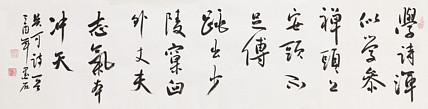 學詩渾
似学参
禪頭上
安頭不
足傳
跳出少
陵窠臼
外丈夫
志氣本
冲天
吴可詩一首